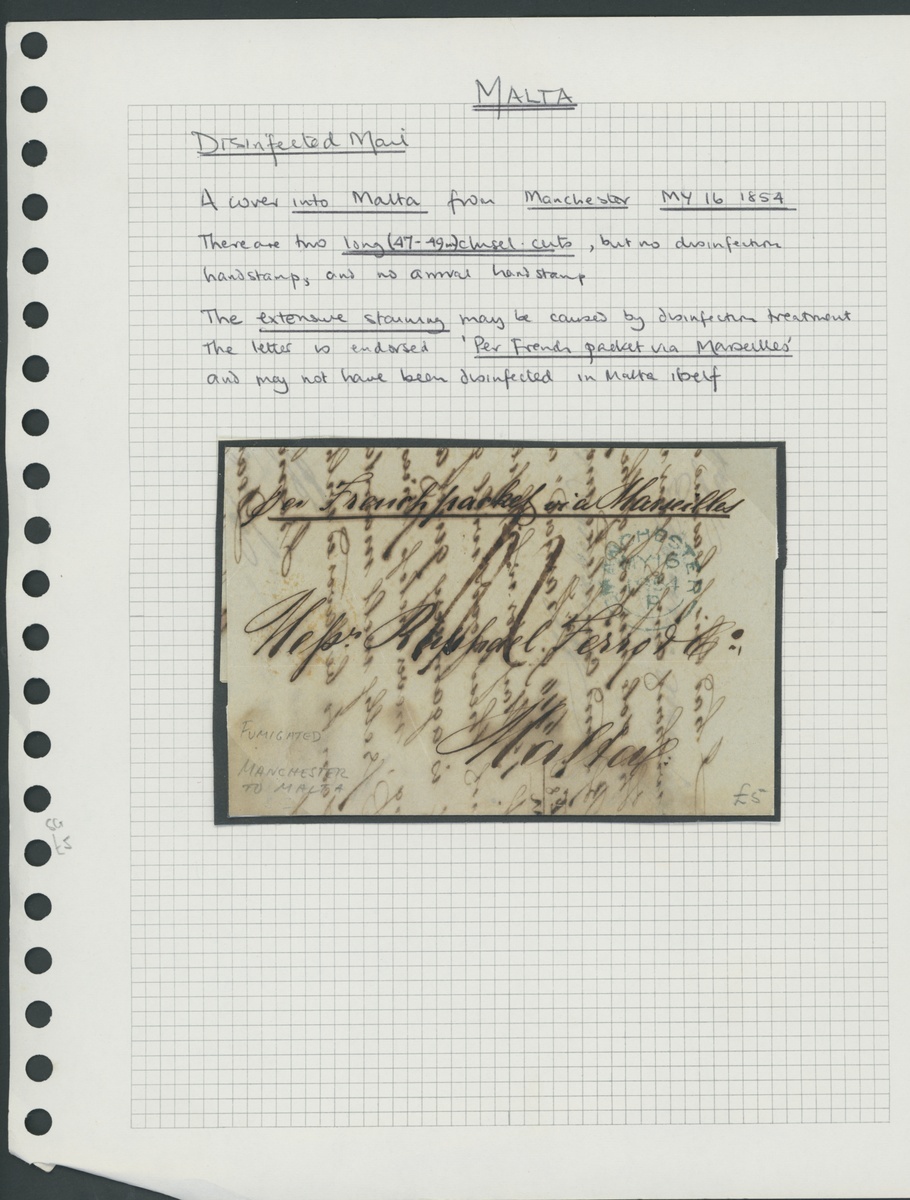 MALTA
Disinfected Mail
A cover into Malta from Manchester MY 16 1854
There are two long (47-49mm) chisel cuts, but no disinfection
handstamp, and no arrival handstamp
The extensive staining may be caused by disinfection treatment
The letter is endorsed 'Per French packet via Marseilles'
and may not have been disinfected in Malta itself
Per French packet via Marseilles
MANCHESTER
Messrs
Malta
FUMIGATED
MANCHESTER
TO MALTA
£5